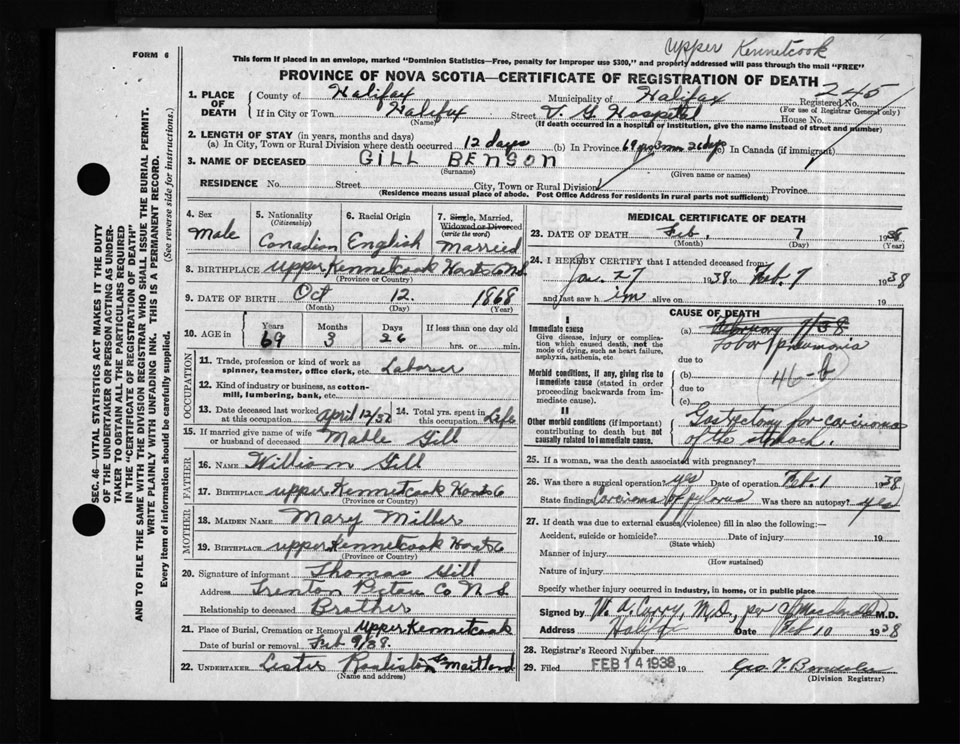 Upper Kennetcook
FORM 6
This form if placed in an envelope, marked "Dominion Statistics—Free, penalty for improper use $300," and properly addressed will pass through the mail "FREE"
PROVINCE OF NOVA SCOTIA—CERTIFICATE OF REGISTRATION OF DEATH
SEC. 46—VITAL STATISTICS ACT MAKES IT THE DUTY
OF THE UNDERTAKER OR PERSON ACTING AS UNDER-
TAKER TO OBTAIN ALL THE PARTICULARS REQUIRED
IN THE "CERTIFICATE OF REGISTRATION OF DEATH"
AND TO FILE THE SAME WITH THE DIVISION REGISTRAR WHO SHALL ISSUE THE BURIAL PERMIT.
WRITE PLAINLY WITH UNFADING INK. THIS IS A PERMANENT RECORD.
Every item of information should be carefully supplied. (See reverse side for instructions.)
1. PLACE OF DEATH County of Halifax Municipality of Halifax Registered No. 245
(For use of Registrar General only)
If in City or Town Halifax Street V. G. Hospital House No.
(Name) (If death occurred in a hospital or institution, give the name instead of street and number)
2. LENGTH OF STAY (in years, months and days)
(a) In City, Town or Rural Division where death occurred 12 days (b) In Province 69 yrs 3 mos 26 dys (c) In Canada (if immigrant)
3. NAME OF DECEASED GILL BENSON
(Surname) (Given name or names)
RESIDENCE No. Street City, Town or Rural Division Province
(Residence means usual place of abode. Post Office Address for residents in rural parts not sufficient)
4. Sex Male
5. Nationality (Citizenship) Canadian
6. Racial Origin English
7. Single, Married, Widowed or Divorced (write the word) Married
8. BIRTHPLACE Upper Kennetcook Hants Co N.S.
(Province or Country)
9. DATE OF BIRTH Oct 12. 1868
(Month) (Day) (Year)
10. AGE in Years 69 Months 3 Days 26 If less than one day old
hrs. or min.
OCCUPATION
11. Trade, profession or kind of work as
spinner, teamster, office clerk, etc. Laborer
12. Kind of industry or business, as cotton-
mill, lumbering, bank, etc.
13. Date deceased last worked at this occupation April 12/37 14. Total yrs. spent in this occupation Life
15. If married give name of wife or husband of deceased Mable Gill
FATHER
16. NAME William Gill
17. BIRTHPLACE Upper Kennetcook Hants Co
(Province or Country)
MOTHER
18. MAIDEN NAME Mary Miller
19. BIRTHPLACE Upper Kennetcook Hants Co
(Province or Country)
20. Signature of informant Thomas Gill
Address Trenton Pictou Co N.S
Relationship to deceased Brother
21. Place of Burial, Cremation or Removal Upper Kennetcook
Date of burial or removal Feb 9/38.
22. UNDERTAKER Maitland
(Name and address)
MEDICAL CERTIFICATE OF DEATH
23. DATE OF DEATH Feb. 7 1938
(Month) (Day) (Year)
24. I HEREBY CERTIFY that I attended deceased from:
Jan. 27 1938 to Feb. 7 1938
and last saw him alive on 19
CAUSE OF DEATH
I
Immediate cause (a) February 7/38
Give disease, injury or complica-
tion which caused death, not the
mode of dying, such as heart failure,
asphyxia, asthenia, etc.
Lobar pneumonia
due to
Morbid conditions, if any, giving rise to
immediate cause (stated in order
proceeding backwards from im-
mediate cause).
(b) 46-b
due to
(c)
II
Other morbid conditions (if important)
contributing to death but not
causally related to immediate cause.
Gastrectomy for carcinoma
of the stomach.
25. If a woman, was the death associated with pregnancy?
26. Was there a surgical operation? yes Date of operation Feb. 1 1938
State findings Carcinoma of pylorus Was there an autopsy? yes
27. If death was due to external causes (violence) fill in also the following:—
Accident, suicide or homicide? Date of injury 19
(State which)
Manner of injury
(How sustained)
Nature of injury
Specify whether injury occurred in industry, in home, or in public place
Signed by W. A. Curry, M.D., per M.D.
Address Halifax Date Feb 10 1938
28. Registrar's Record Number
29. Filed FEB 14 1938 19
(Division Registrar)